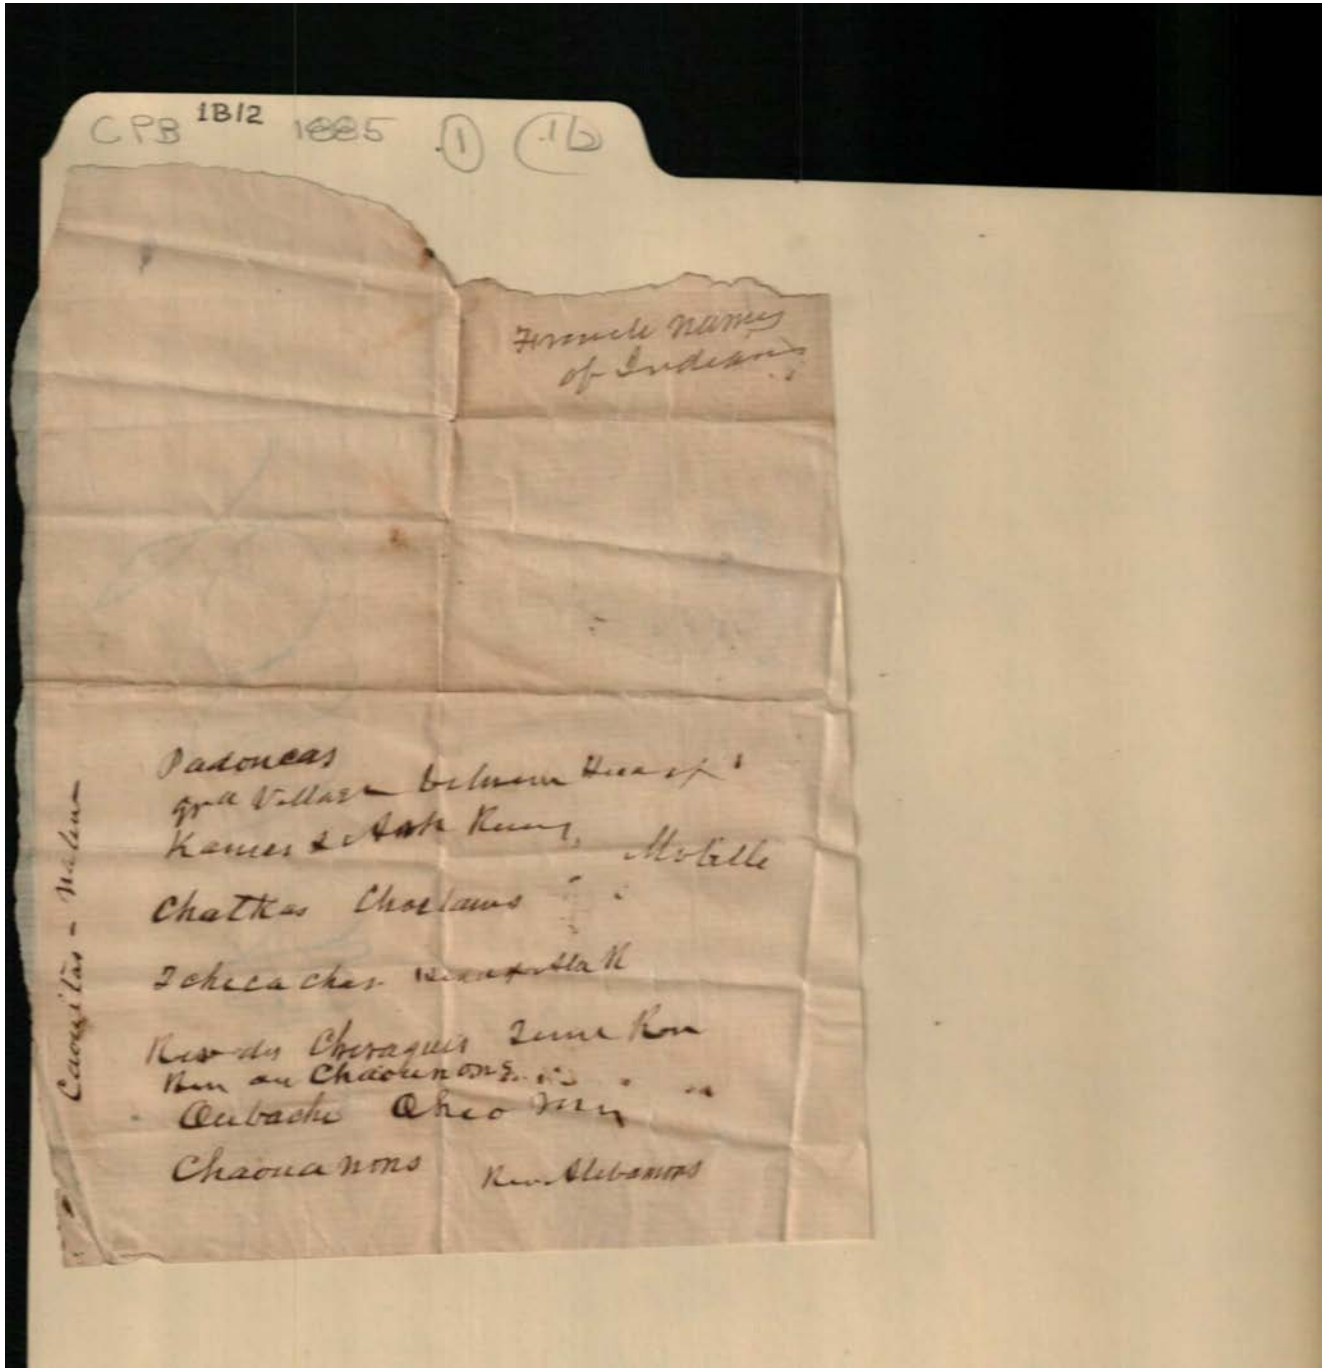 CPB 1B12 1885 .1 (.1b)
French names
of Indians
Padoucas
grd Village between Heads of
Kanses & Ark River
Mobille
Chatkas Choctaws
Tchicachas
Riv des Cheraquis Tenne Riv
Riv au Chaounons
Oubache Ohio
Chaouanons Riv Alibamons
Caouitas -